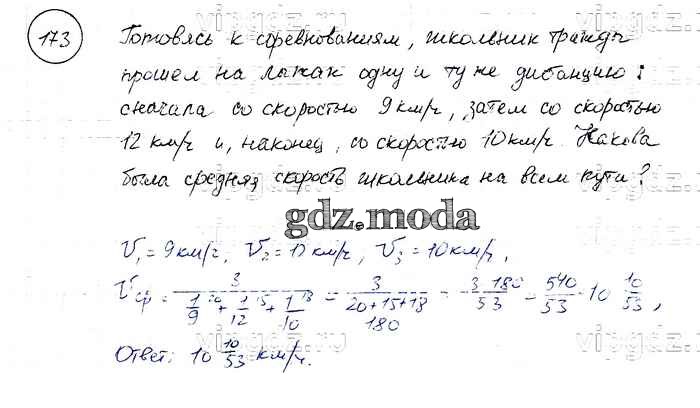 173
Готовясь к соревнованиям, школьник трижды
прошел на лыжах одну и ту же дистанцию:
сначала со скоростью 9 км/ч, затем со скоростью
12 км/ч и, наконец, со скоростью 10 км/ч. Какова
была средняя скорость школьника на всем пути?
gdz.moda
V₁ = 9 км/ч, V₂ = 12 км/ч, V₃ = 10 км/ч,
Vср = 3/(1/9 ²⁰ + 1/12 ¹⁵ + 1/10 ¹⁸) = 3/((20+15+18)/180) = 3·180/53 = 540/53 = 10 10/53,
Ответ: 10 10/53 км/ч.
vipgdz.ru